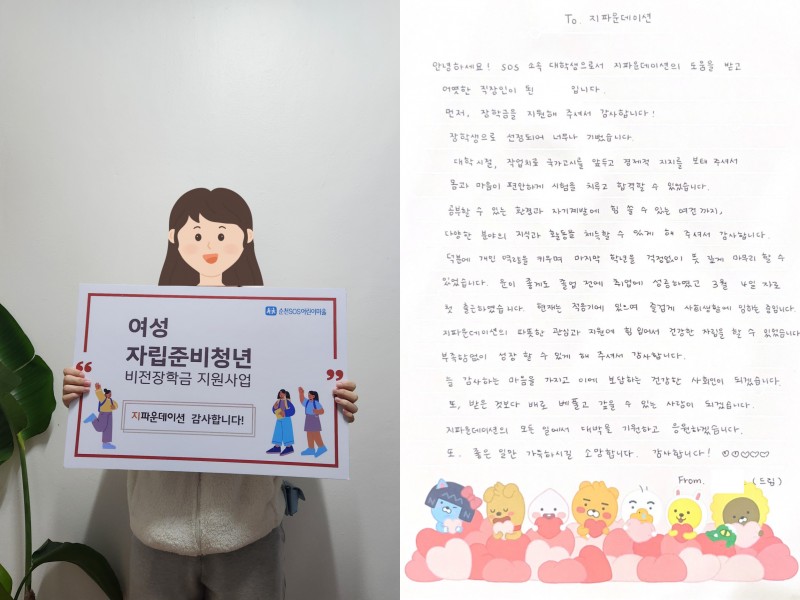 순천SOS어린이마을
여성
자립준비청년
비전장학금 지원사업
지파운데이션 감사합니다!
To. 지파운데이션
안녕하세요! SOS 소속 대학생으로서 지파운데이션의 도움을 받고
어엿한 직장인이 된 입니다.
먼저, 장학금을 지원해 주셔서 감사합니다!
장학생으로 선정되어 너무나 기뻤습니다.
대학시절, 작업치료 국가고시를 앞두고 경제적 지지를 보태 주셔서
몸과 마음이 편안하게 시험을 치루고 합격할 수 있었습니다.
공부할 수 있는 환경과 자기계발에 힘 쓸 수 있는 여건까지,
다양한 분야의 지식과 활동을 체득할 수 있게 해 주셔서 감사합니다.
덕분에 개인 역량을 키우며 마지막 학년을 걱정없이 뜻 깊게 마무리 할 수
있었습니다. 운이 좋게도 졸업 전에 취업에 성공하였고 3월 4일 자로
첫 출근하였습니다. 현재는 적응기에 있으며 즐겁게 사회생활에 임하는 중입니다.
지파운데이션의 따뜻한 관심과 지원에 힘 입어서 건강한 자립을 할 수 있었습니다
부족함없이 성장 할 수 있게 해 주셔서 감사합니다.
늘 감사하는 마음을 가지고 이에 보답하는 건강한 사회인이 되겠습니다.
또, 받은 것보다 배로 베풀고 갚을 수 있는 사람이 되겠습니다.
지파운데이션의 모든 일에서 대박을 기원하고 응원하겠습니다.
또. 좋은 일만 가득하시길 소망합니다. 감사합니다! ♡♡♡♡♡
From. (드림)